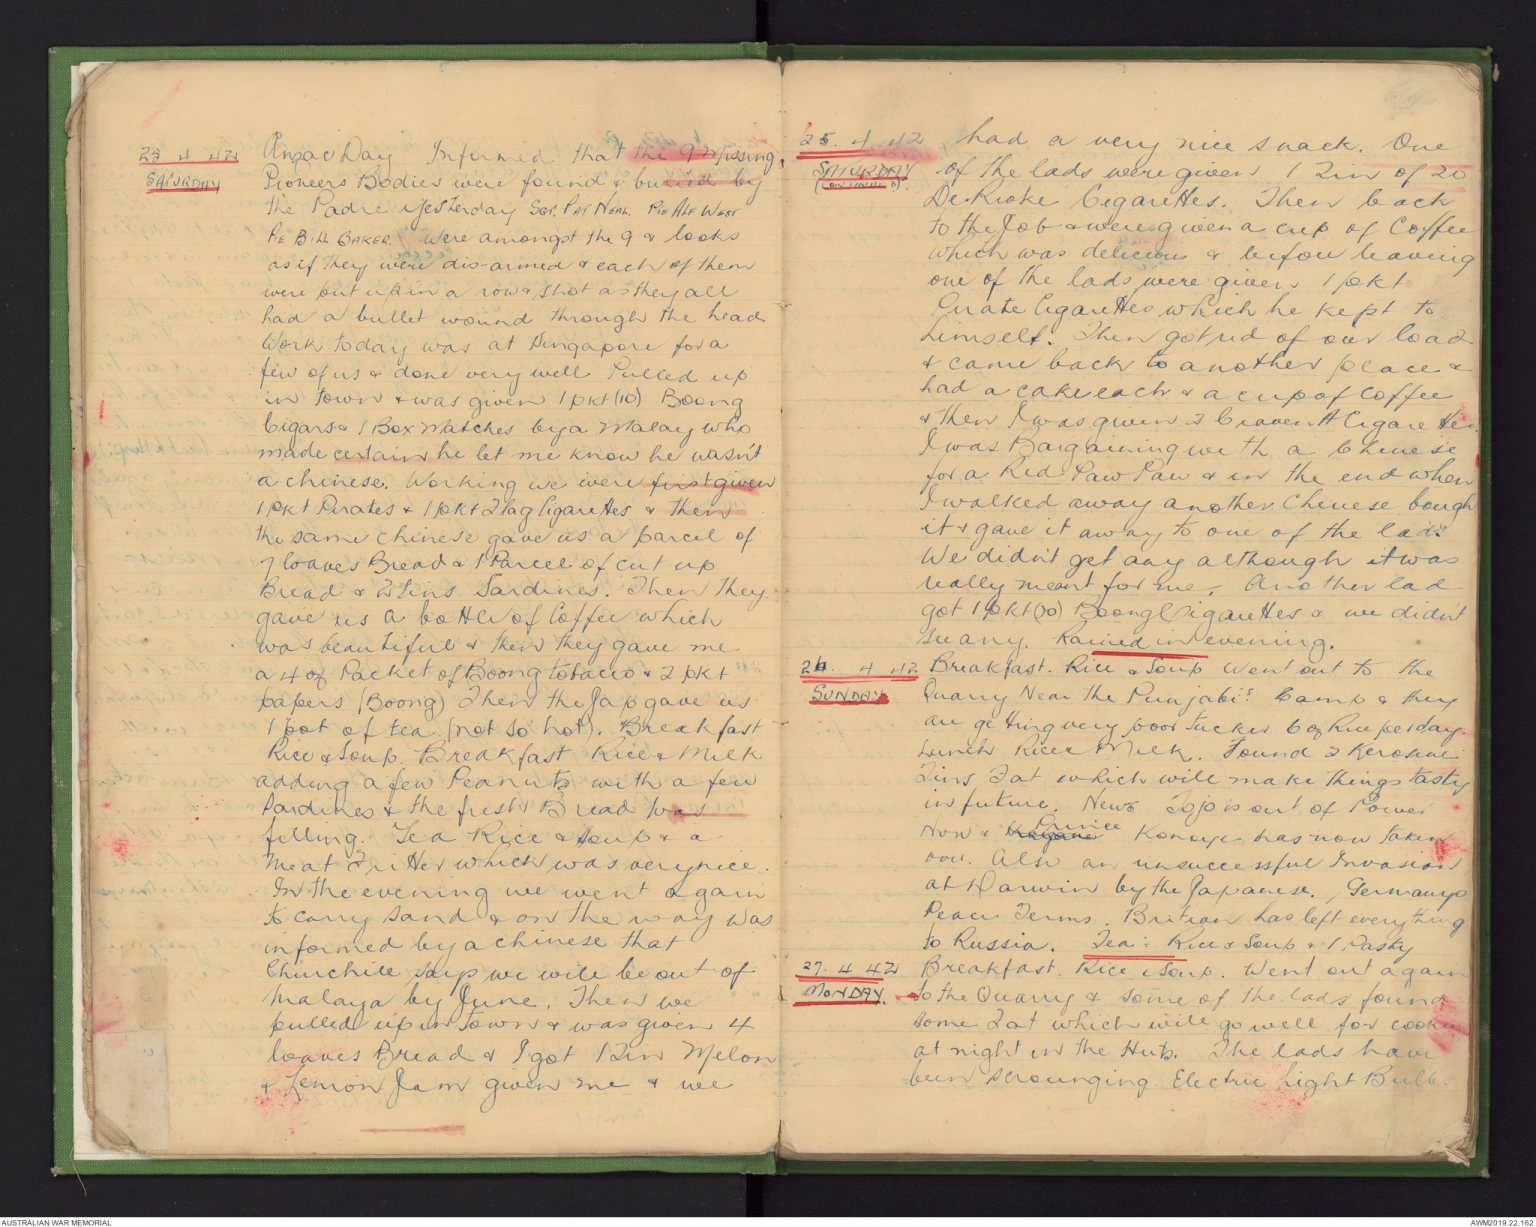 25 4 42
SATURDAY
Anzac Day. Informed that the 9 Missing
Pioneers Bodies were found & buried by
the Padre yesterday Sgt. Pat Neal. Pte Alf West
Pte Bill Baker. Were amongst the 9 & looks
as if they were dis-armed & each of them
were put up in a row & shot as they all
had a bullet wound through the head
Work today was at Singapore for a
few of us & done very well Pulled up
in town & was given 1 pkt (10) Boong
Cigars & 1 Box Matches by a Malay who
made certain he let me know he wasn't
a chinese. Working we were first given
1 pkt Pirates & 1 pkt Flag Cigarettes & then
the same chinese gave us a parcel of
7 loaves Bread & 1 Parcel of cut up
Bread & 2 Tins Sardines. Then they
gave us a bottle of Coffee which
was beautiful & then they gave me
a 4 oz Packet of Boong tobacco & 2 pkt
papers (Boong) Then the Jap gave us
1 pot of tea (not so hot). Breakfast
Rice & Soup. Breakfast Rice & Milk
adding a few Peanuts with a few
Sardines & the fresh Bread was
filling. Tea Rice & Soup & a
Meat Fritter which was very nice.
In the evening we went again
to carry sand & on the way was
informed by a chinese that
Churchill says we will be out of
Malaya by June. Then we
pulled up in town & was given 4
loaves Bread & I got 1 Tin Melon
& Lemon Jam given me & we
25. 4. 42
SATURDAY
(CONTINUED).
had a very nice snack. One
of the lads were given 1 Tin of 20
De Reske Cigarettes. Then back
to the Job & were given a cup of Coffee
which was delicious & before leaving
one of the lads were given 1 pkt
Pirate Cigarettes which he kept to
himself. Then got rid of our load
& came back to another place &
had a cake each & a cup of Coffee
& then I was given 2 Craven A Cigarettes.
I was Bargaining with a Chinese
for a Red Paw Paw & in the end when
I walked away another Chinese bough
it & gave it away to one of the lads
We didn't get any although it was
really meant for me. Another lad
got 1 pkt (10) Boong Cigarettes & we didn't
see any. Rained in evening.
26. 4 42
SUNDAY
Breakfast. Rice & Soup Went out to the
Quarry Near the Punjabi's Camp & they
are getting very poor tucker 6 oz Rice per day.
Lunch Rice & Milk. Found 2 Kerosine
Tins Fat which will make things tasty
in future. News Tojo is out of Power
Now & Prince Konoye has now taken
over. Also an unsuccessful Invasion
at Darwin by the Japanese. Germanys
Peace Terms. Britian has left everything
to Russia. Tea: Rice & Soup & 1 Pasty
27. 4 42
MONDAY.
Breakfast. Rice & Soup. Went out again
to the Quarry & some of the lads found
some Fat which will go well for cookin
at night in the Huts. The lads have
been scrounging Electric Light Bulbs
AUSTRALIAN WAR MEMORIAL
AWM2019.22.162